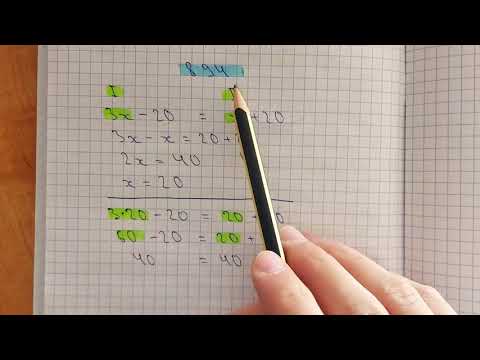 894
I
3x - 20 = + 20
3x - x = 20 +
2x = 40
x = 20
3·20 - 20 = 20
60 - 20 = 20 +
40 = 40